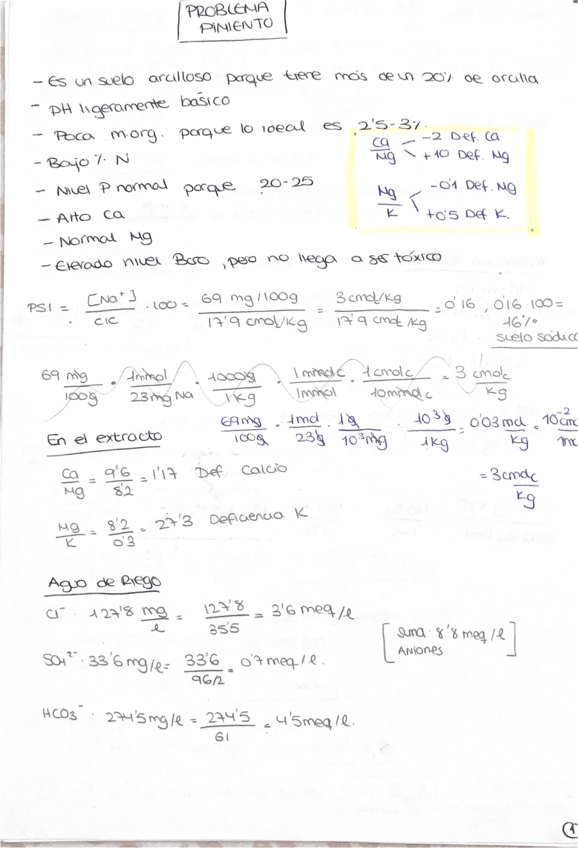 PROBLEMA
PIMIENTO
- Es un suelo arcilloso porque tiene más de un 20% de arcilla
- pH ligeramente básico
- Poca m.org. porque lo ideal es 2'5-3%.
- Bajo % N
- Nivel P normal porque 20-25
- Alto Ca
- Normal Mg
- Elevado nivel Boro, pero no llega a ser tóxico
Ca/Mg < -2 Def. Ca
+10 Def. Mg
Mg/K < -0'1 Def. Mg
+0'5 Def K.
PSI = [Na+]/CIC · 100 = 69 mg/100g / 17'9 cmol/kg = 3 cmol/kg / 17'9 cmol/kg = 0'16 ; 0'16·100 =
16%
suelo sódico
69 mg/100g · 1mmol/23mg Na · 1000g/1kg · 1mmolc/1mmol · 1cmolc/10mmolc = 3 cmolc/kg
69mg/100g · 1mol/23g · 1g/10³mg · 10³g/1kg = 0'03 mol/kg = 10⁻²
= 3cmolc/kg
En el extracto
Ca/Mg = 9'6/8'2 = 1'17 Def. Calcio
Mg/K = 8'2/0'3 = 27'3 Deficiencia K
Agua de Riego
Cl⁻ 127'8 mg/l = 127'8/35'5 = 3'6 meq/l
SO₄²⁻ · 33'6 mg/l = 33'6/96/2 = 0'7 meq/l.
HCO₃⁻ · 274'5 mg/l = 274'5/61 = 4'5 meq/l.
[suma: 8'8 meq/l
ANIONES]
1